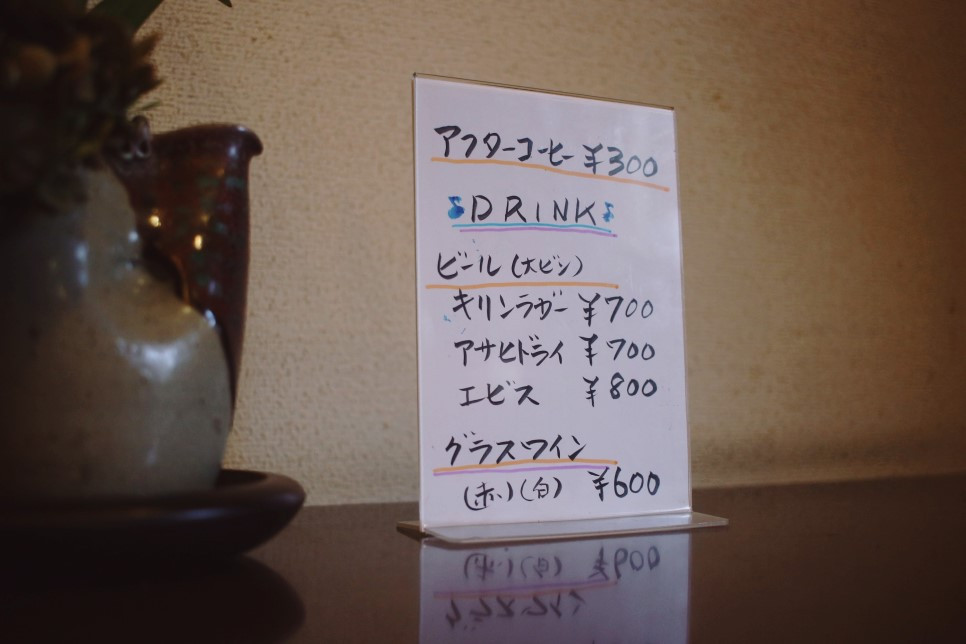 アフターコーヒー ¥300
♪DRINK♪
ビール(大ビン)
キリンラガー ¥700
アサヒドライ ¥700
エビス ¥800
グラスワイン
(赤)(白) ¥600